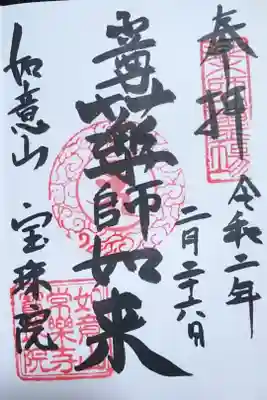 奉拝
令和二年
二月二十六日
薬師如来
如意山 宝珠院
如意山
常樂寺